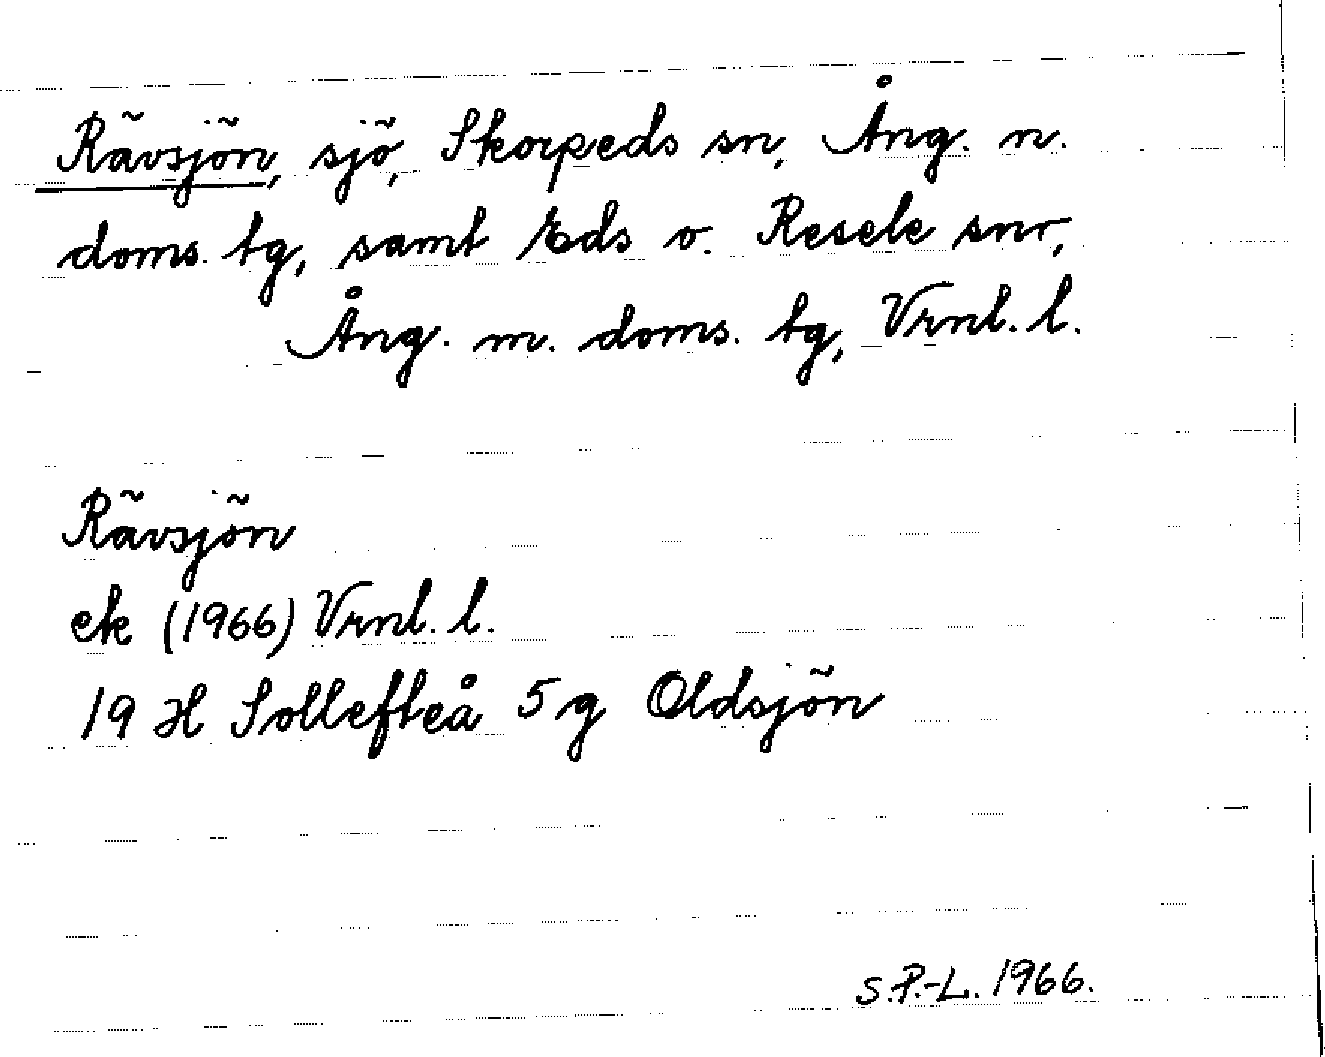 Rävsjön, sjö, Skorpeds sn, Ång. n.
doms. tg, samt Eds o. Resele snr,
Ång. m. doms. tg, Vrnl. l.
Rävsjön
ek (1966) Vrnl. l.
19 H Sollefteå 5 g Oldsjön
S.P.-L. 1966.